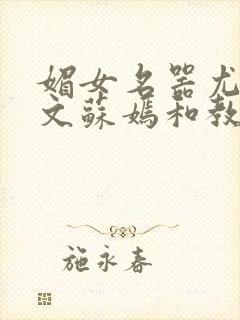 媚女名器尤
文蘇媽和教
施永春